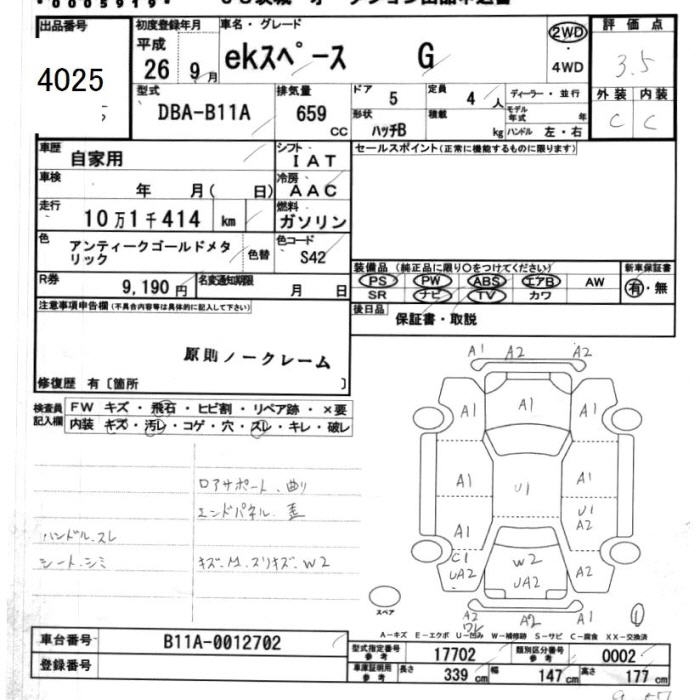 出品番号
4025
初度登録年月
平成
26 9月
車名・グレード
ekスペース G
2WD
・
4WD
評価点
3.5
外装 内装
C C
型式
DBA-B11A
排気量
659
CC
ドア 5
定員 4人
形状 ハッチB
積載 kg
ディーラー・並行
モデル年式 年
ハンドル 左・右
車歴 自家用
シフト IAT
車検 年 月( 日)
冷房 AAC
走行 10万1千414 km
燃料 ガソリン
色 アンティークゴールドメタリック
色替
色コード S42
R券 9,190円
名変通知期限 月 日
セールスポイント(正常に機能するものに限ります)
装備品 (純正品に限り○をつけてください)
PS PW ABS エアB AW
SR ナビ TV カワ
新車保証書
有・無
後日品 保証書・取説
注意事項申告欄(不具合内容等は具体的に記入して下さい)
原則ノークレーム
修復歴 有〔箇所 〕
検査員記入欄
FW キズ・飛石・ヒビ割・リペア跡・×要
内装 キズ・汚レ・コゲ・穴・スレ・キレ・破レ
ロアサポート、曲り
エンドパネル 歪
ハンドル、スレ
シート、シミ
キズ、M、スリキズ、W2
A1 A2 A2
A1 A1 A1
A1 U1 A1
U1
A2
A1
C1
UA2
W2
UA2
A2
A2
ワレ
A2 A1
①
スペア
A-キズ E-エクボ U-凹み W-補修跡 S-サビ C-腐食 XX-交換済
車台番号 B11A-0012702
登録番号
型式指定番号 参考 17702
類別区分番号 参考 0002
車庫証明用 参考 長さ 339cm 幅 147cm 高さ 177cm